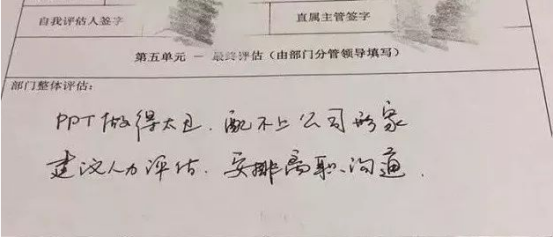 自我评估人签字 直属主管签字
第五单元 — 最终评估（由部门分管领导填写）
部门整体评估：
PPT做得太丑．配不上公司形象
建议人力评估．安排离职沟通．